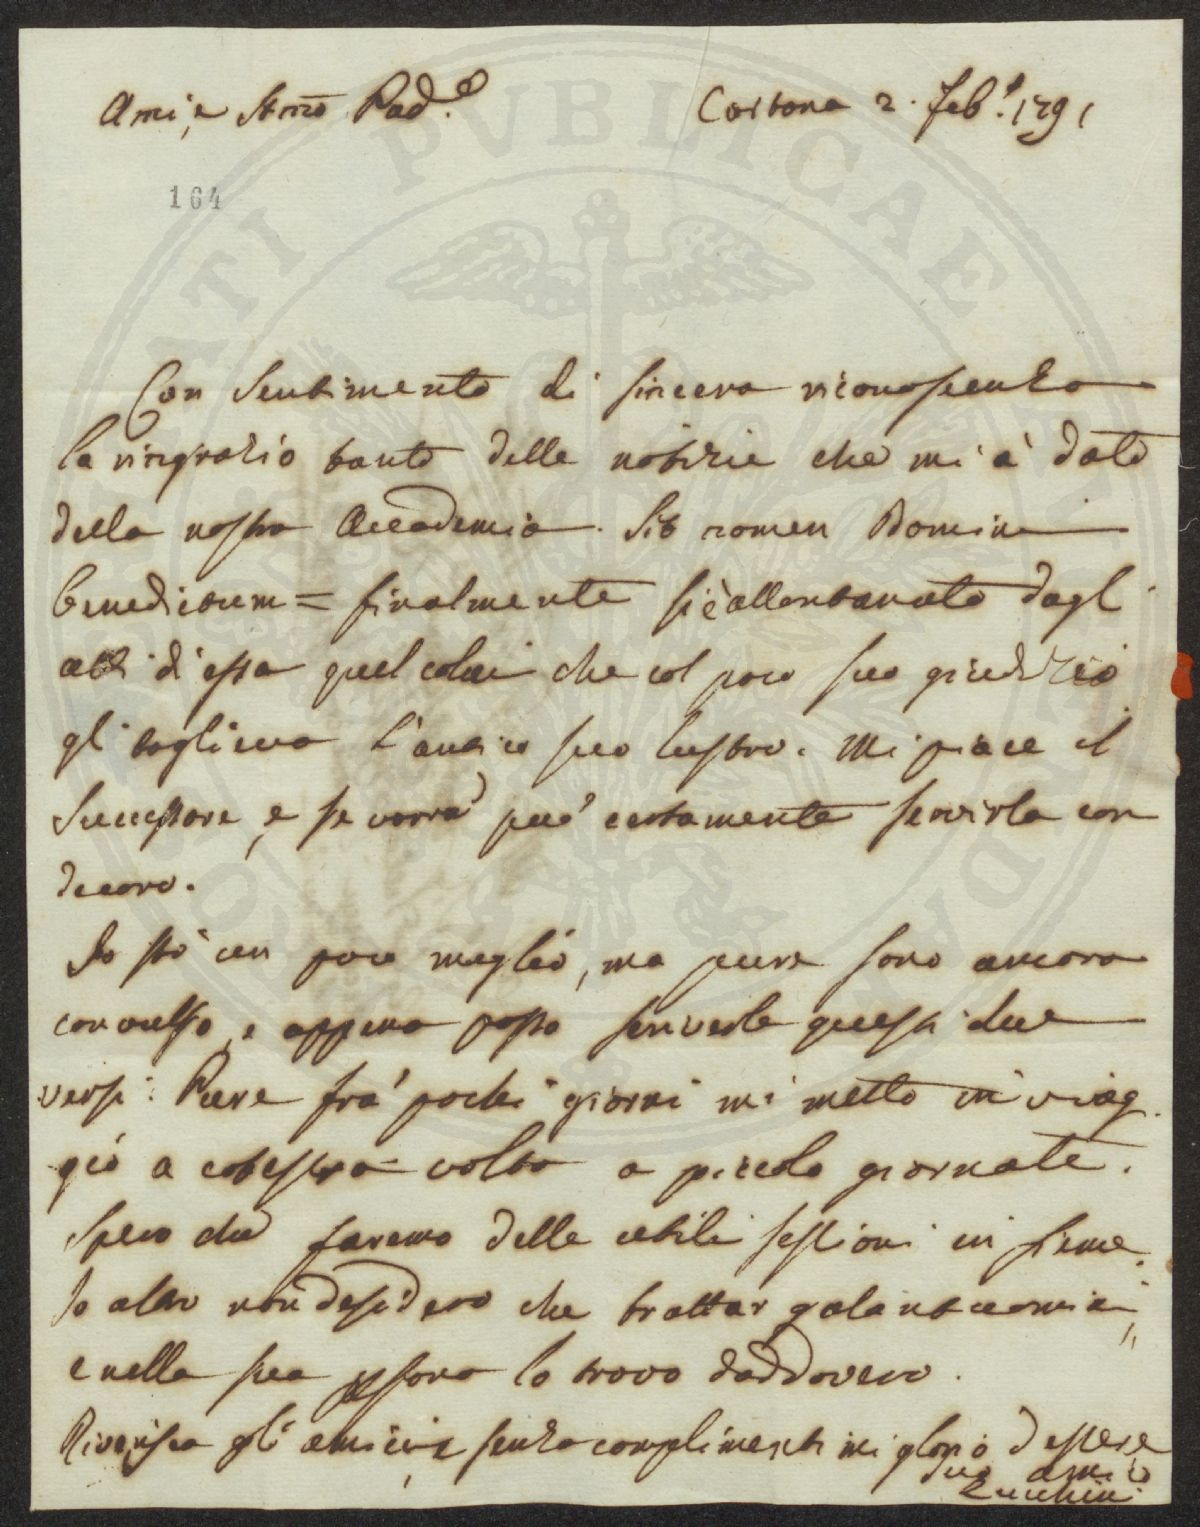 Ami, e Stmo Pad.e Cortona 2. Feb.o 1791
164
Con sentimento di sincera riconoscenza
la ringrazio tanto delle notizie che mi à dato
della nostra Accademia. Sit nomen Domini
benedictum = finalmente si è allontanato dagl
atti d'essa quel colui che col poco suo giudizio
gli toglieva l'antico suo lustro. Mi piace il
Successore, e se vorrà può certamente servirla con
decoro.
Io stò un poco meglio, ma pure sono ancora
convulso, e appena posso scriverle questi due
versi. Pure frà pochi giorni mi metto in viag
gio a cotesta volta a piccole giornate.
Spero che faremo delle utili sessioni in sieme.
Io altro non desidero che trattar galantuomini,
e nella sua persona lo trovo daddovero.
Riverisca gli amici, e senza complimenti mi glorio d'essere
suo amico
Zucchini
PUBLICAE